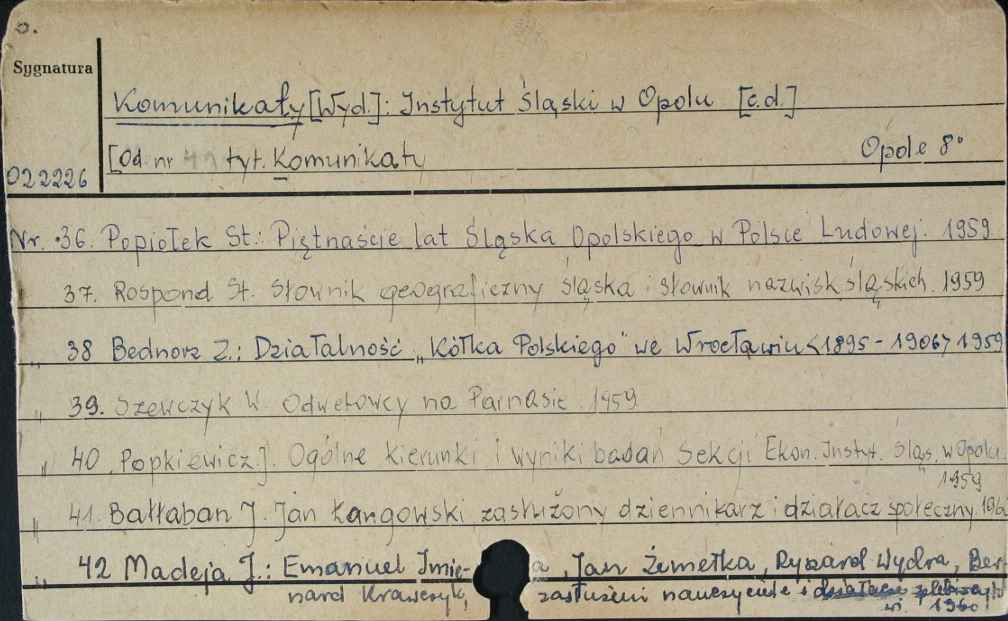 Sygnatura
Komunikaty [Wyd.]: Instytut Śląski w Opolu [c.d.]
[Od nr tyt. Komunikaty Opole 8°
022226
Nr. 36. Popiołek St.: Piętnaście lat Śląska Opolskiego w Polsce Ludowej. 1959
37. Rospond St. Słownik geograficzny śląska i słownik nazwisk śląskich. 1959
" 38 Bednorz Z.: Działalność „Kółka Polskiego" we Wrocławiu <1895-1906> 1959
" 39. Szewczyk W. Odwetowcy na Parnasie. 1959
" 40. Popkiewicz J. Ogólne kierunki i wyniki badań Sekcji Ekon. Instyt. Śląs. w Opolu.
1959
" 41. Bałłaban J. Jan Łangowski, zasłużony dziennikarz i działacz społeczny.
" 42 Madeja J.: Emanuel Imie- a, Jan Żemełka, Ryszard Wydra, Ber-
nard Krawczyk, zasłużeni nauczyciele i działacze
1960